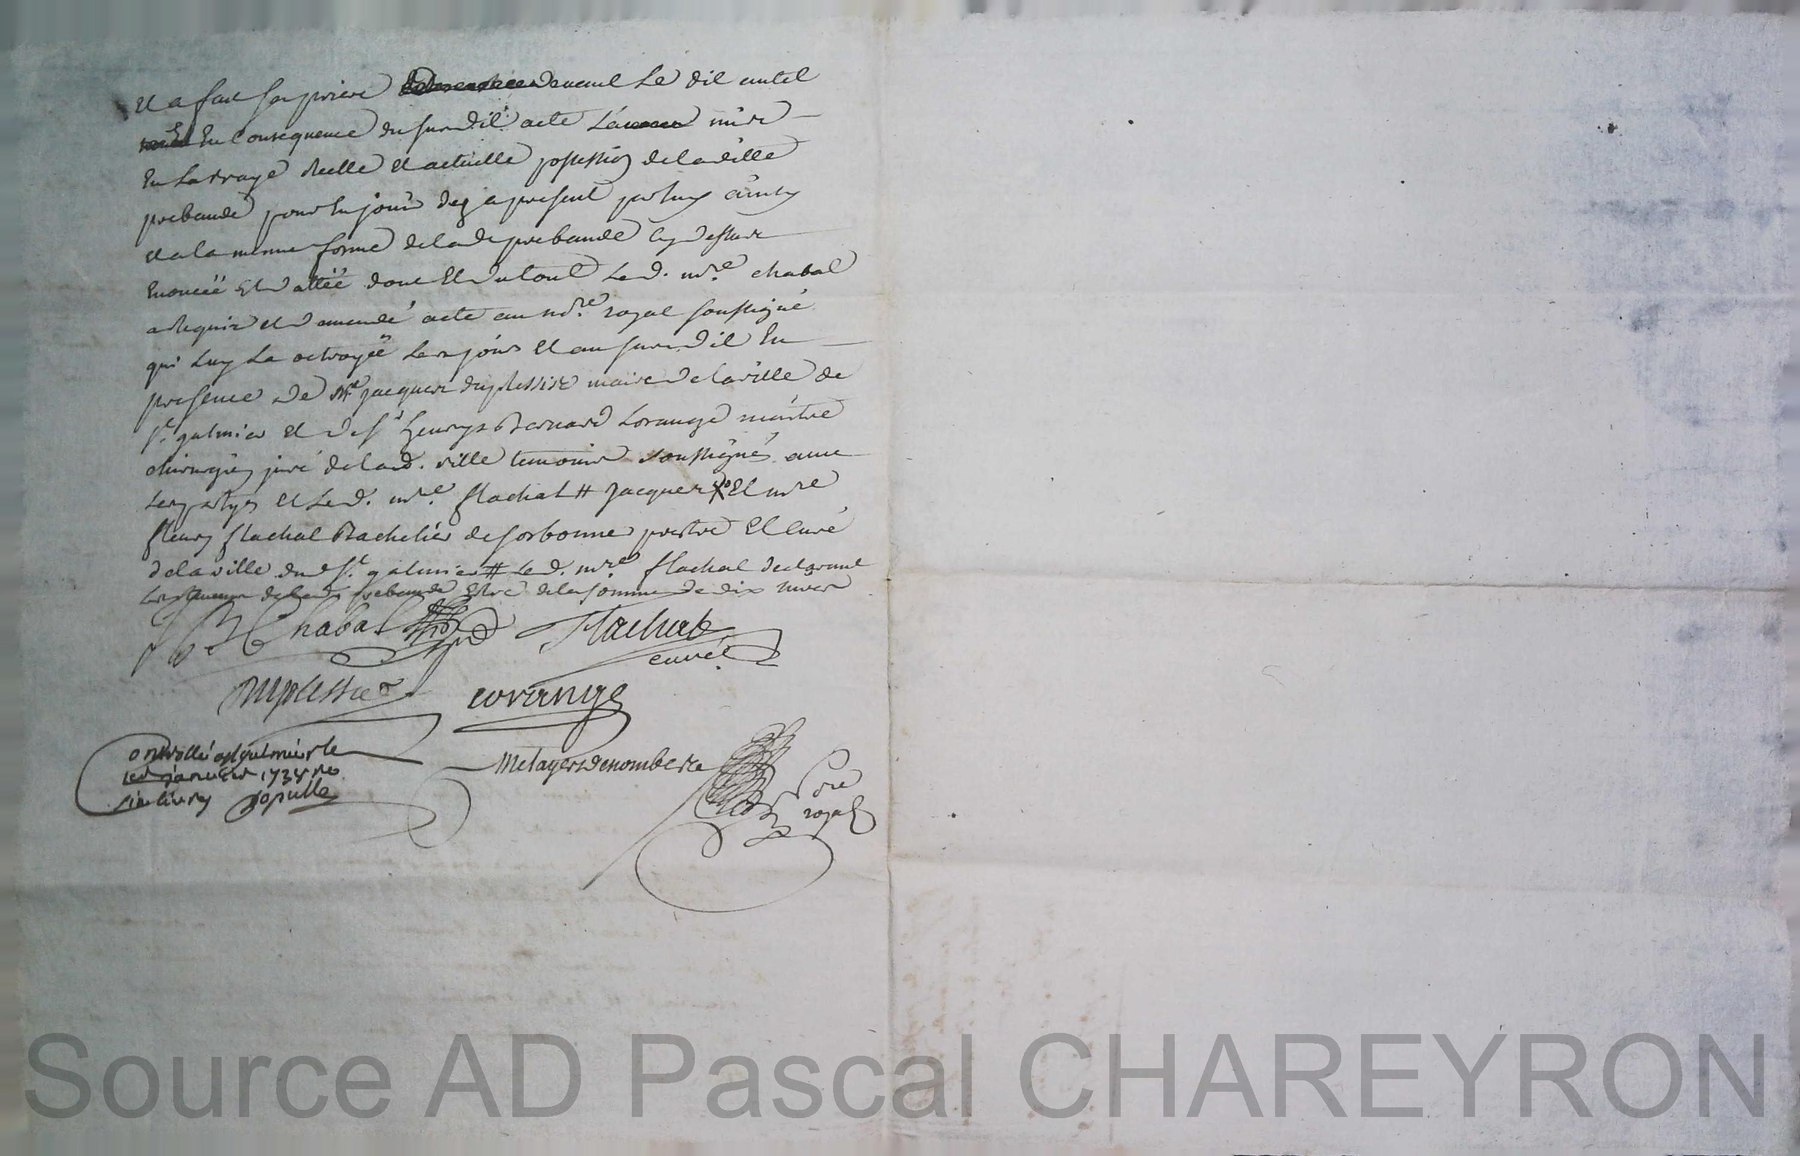 et a fait sa priere devant Le dit autel
En Consequence du susdit acte La mis
En La vraye réelle Et actuelle possession de la ditte
prebande pour En jouir des a present par luy ainsy
et a la meme forme de la de prebande cy dessus
Enoncéé Et dattéé dont Et du tout Le d. mre. chabal
a Requis et demandé acte au nore. royal soussigné
qui Luy La octroyéé Les jours Et an susdit En
presence de Mr. jacques duplessis maire de la ville de
St. galmier et de Sr henrys Bernard Lorange maitre
chirurgien juré de la d. ville temoins soussignés avec
Les partyes et Le d. mre. flachat # jacques Et mre
fleury flachat Bachelier de sorbonne prestre Et Curé
de la ville de St. galmier # Le d. mre. flachat declarant
de la d. prebande Estre de la somme de dix livres
Chabal flachat
curé
Duplessis Lorange
Controllé a St galmier le
janvier 1734
six livres
Metayer denombre
Nore
royal
Source AD Pascal CHAREYRON